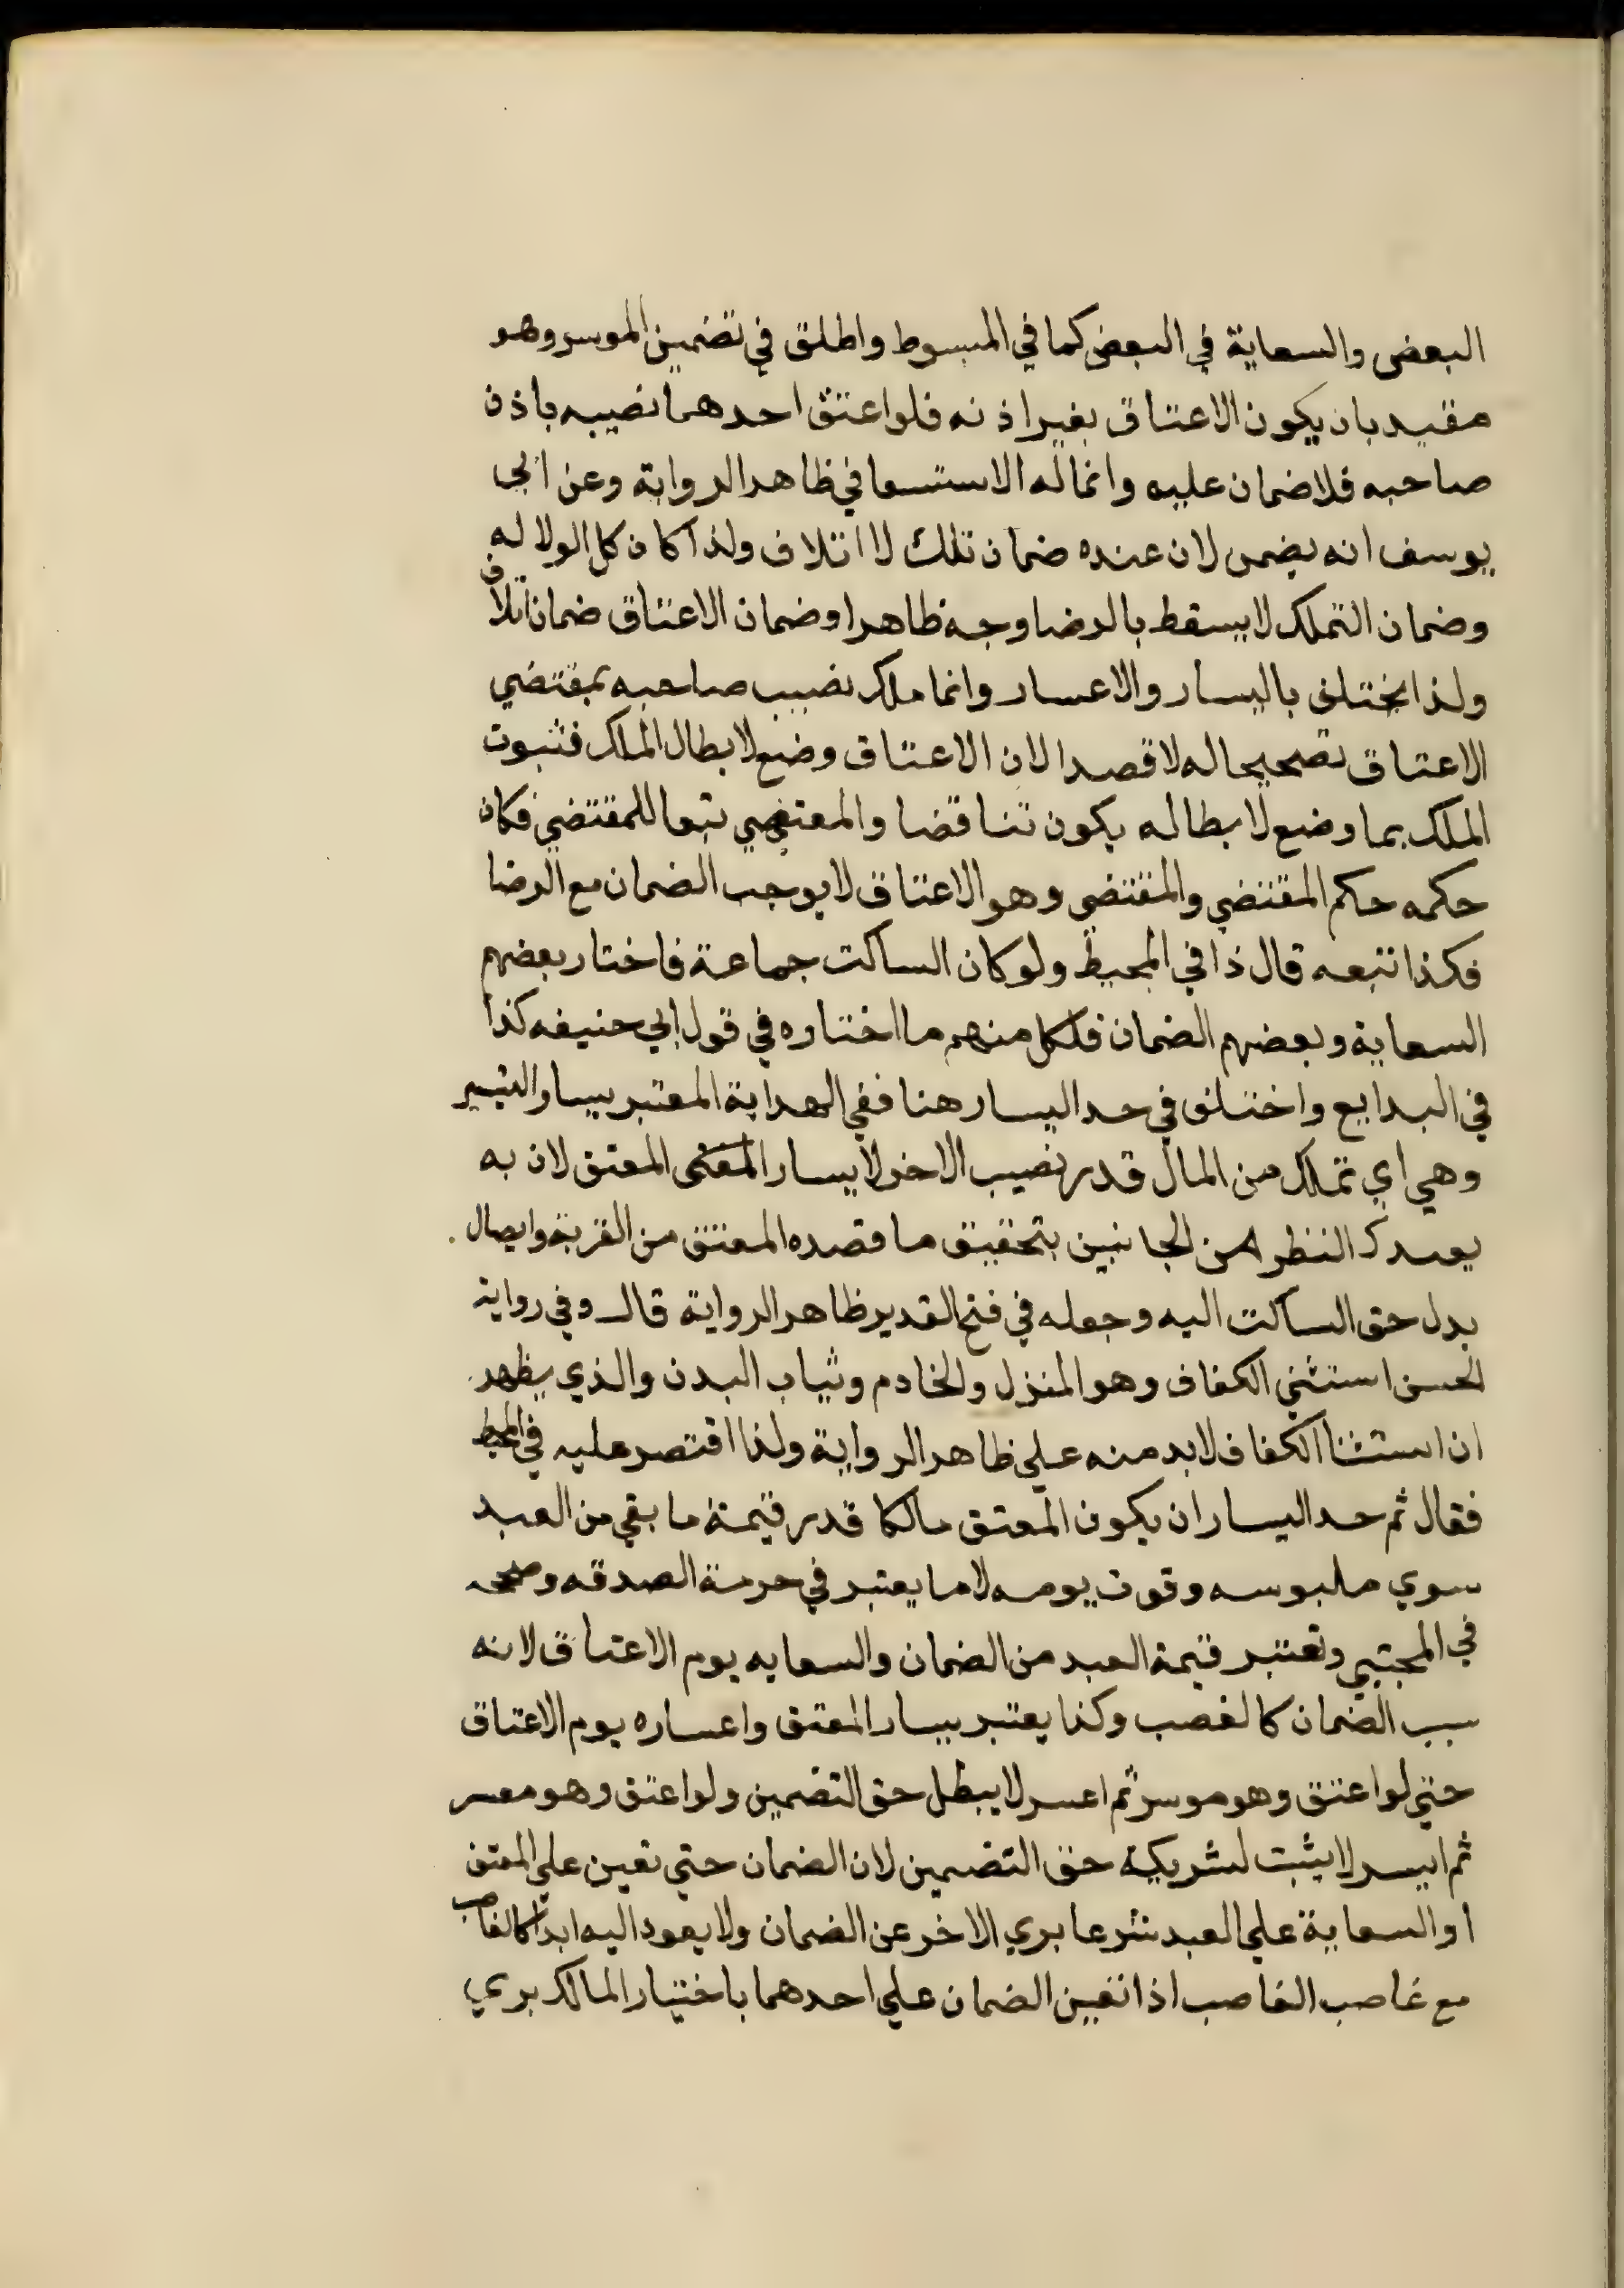 البعض والسعاية في البعض كما في المبسوط واطلق في تضمين الموسر وهو
مقيد بان يكون الاعتاق بغير اذنه فلو اعتق احدهما نصيبه باذن
صاحبه فلا ضمان عليه وانما له الاستسعا في ظاهر الرواية وعن ابي
يوسف انه يضمن لان عنده ضمان تملك لا اتلاف ولذا كان كل الولا له
وضمان التملك لا يسقط بالرضا وجه ظاهرا وضمان الاعتاق ضمان اتلاف
ولذا يختلف باليسار والاعسار وانما ملك نصيب صاحبه بمقتضي
الاعتاق تصحيحا له لا قصدا لان الاعتاق وضع لابطال الملك فثبوت
الملك بما وضع لابطاله يكون تناقضا والمقتضي تبعا للمقتضي فكان
حكمه حكم المقتضي والمقتضي وهو الاعتاق لا يوجب الضمان مع الرضا
فكذا تبعه قال ذا في المحيط ولو كان الساكت جماعة فاختار بعضهم
السعاية وبعضهم الضمان فلكل منهم ما اختاره في قول ابي حنيفه كذا
في البدايع واختلف في حد اليسار هنا ففي الهداية المعتبر يسار التيسير
وهي اي تملك من المال قدر نصيب الاخر لا يسار الغنى المعتق لان به
يعدل النظر من الجانبين بتحقيق ما قصده المعتق من القربة وايصال
بدل حق الساكت اليه وجعله في فتح القدير ظاهر الرواية قال وفي رواية
الحسن استثني الكفاف وهو المنزل والخادم وثياب البدن والذي يظهر
ان استثنا الكفاف لابد منه علي ظاهر الرواية ولذا اقتصر عليه في المحيط
فقال ثم حد اليسار ان يكون المعتق مالكا قدر قيمة ما بقي من العبد
سوي ملبوسه وقوت يومه لا ما يعتبر في حرمة الصدقه وصححه
في المجتبي وتعتبر قيمة العبد من الضمان والسعايه يوم الاعتاق لانه
سبب الضمان كالغصب وكذا يعتبر يسار المعتق واعساره يوم الاعتاق
حتي لو اعتق وهو موسر ثم اعسر لا يبطل حق التضمين ولو اعتق وهو معسر
ثم ايسر لا يثبت لشريكه حق التضمين لان الضمان حتي تعين علي المعتق
او السعاية علي العبد شرعا بري الاخر عن الضمان ولا يعود اليه ابدا كالغاصب
مع غاصب الغاصب اذا تعين الضمان علي احدهما باختيار المالك بري